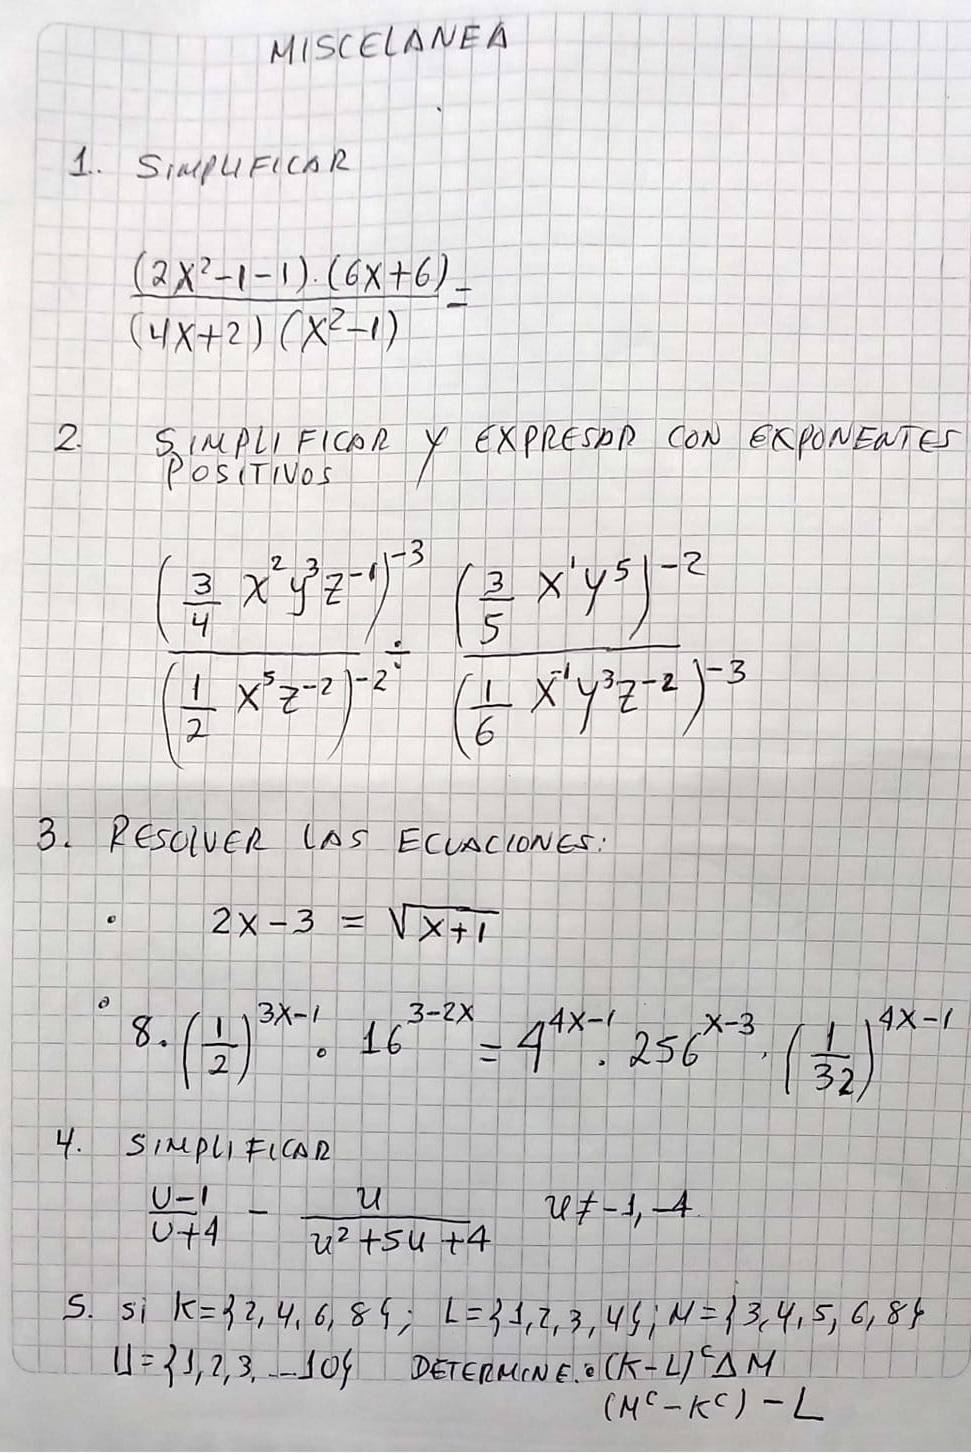 MISCELANEA
1. SIMPLIFICAR
(2x²-1-1).(6x+6) =
(4x+2)(x²-1)
2. SIMPLIFICAR Y EXPRESAR CON EXPONENTES
POSITIVOS
(3/4 x²y³z⁻¹)⁻³ ÷ (3/5 x¹y⁵)⁻²
(1/2 x⁵z⁻²)⁻² (1/6 x⁻¹y³z⁻²)⁻³
3. RESOLVER LAS ECUACIONES:
• 2x-3 = √(x+1)
• 8.(1/2)^(3x-1) . 16^(3-2x) = 4^(4x-1) . 256^(x-3) . (1/32)^(4x-1)
4. SIMPLIFICAR
(U-1)/(U+4) - u/(u²+5u+4) u≠-1,-4.
5. si K={2,4,6,8}; L={1,2,3,4}; M={3,4,5,6,8}
U={1,2,3,...10} DETERMINE: (K-L)ᶜ Δ M
(Mᶜ-Kᶜ)-L